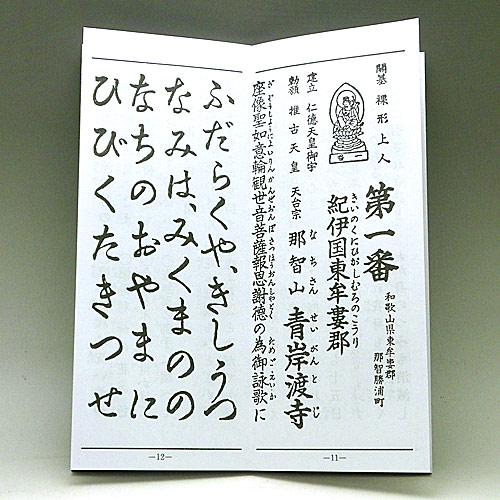 開基 裸形上人
第一番
和歌山県東牟婁郡
那智勝浦町
きいのくにひがしむろのこうり
紀伊国東牟婁郡
建立 仁徳天皇御宇
勅願 推古天皇
なちさん せいがんとじ
天台宗 那智山 青岸渡寺
ざぞうしょうにょいりんかんぜおんぼさつほうおんしゃとく ため ごえいか
座像聖如意輪観世音菩薩報恩謝徳の為御詠歌に
—11—
ふだらくや、きしうつ
なみは、みくまのの
なちのおやまに
ひびくたきつせ
—12—